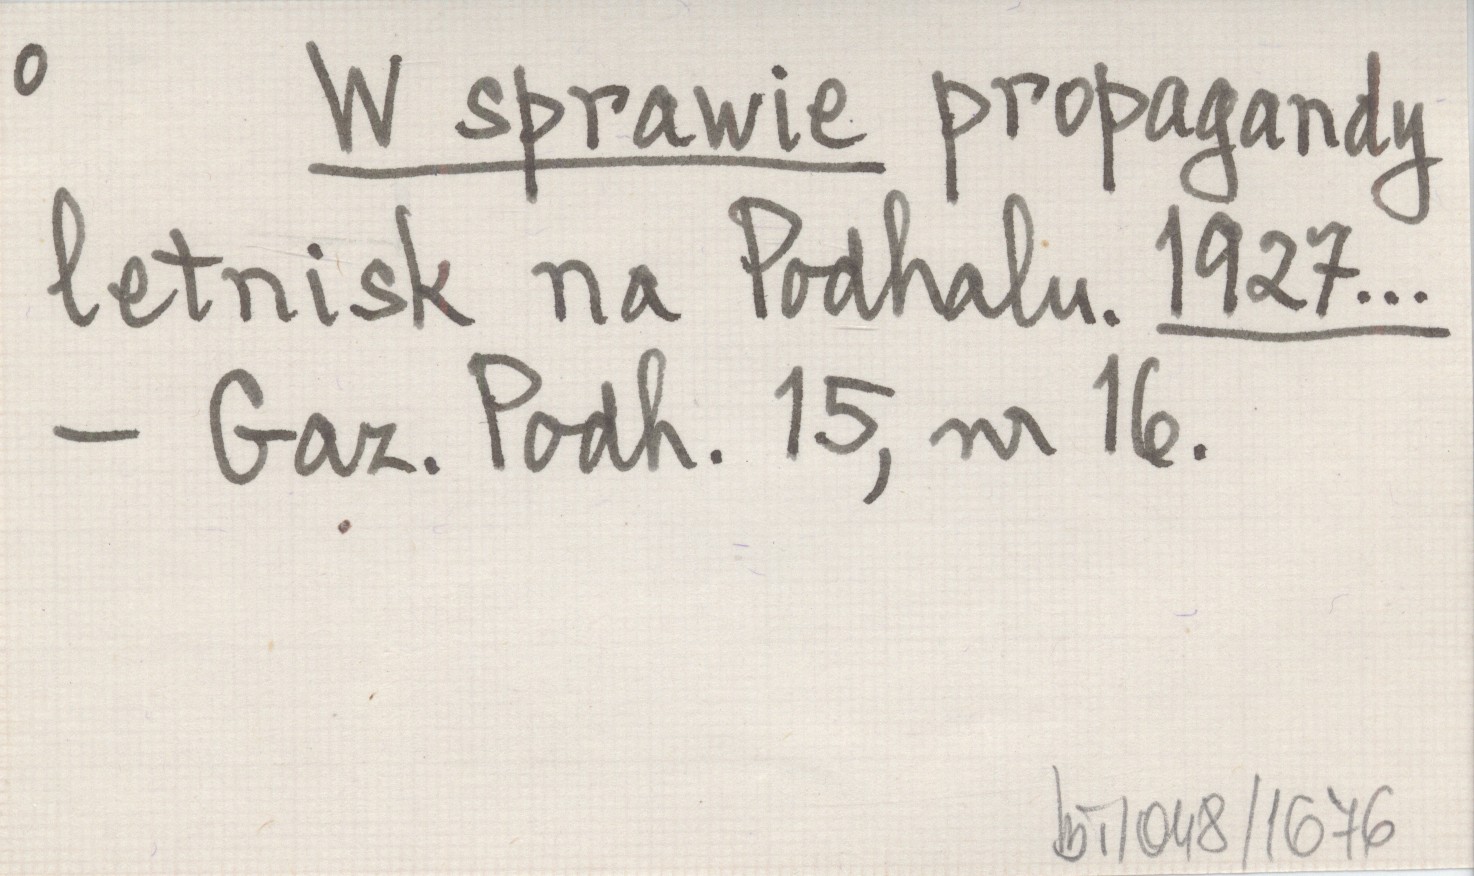 o W sprawie propagandy
letnisk na Podhalu. 1927...
– Gaz. Podh. 15, nr 16.
/048/1676